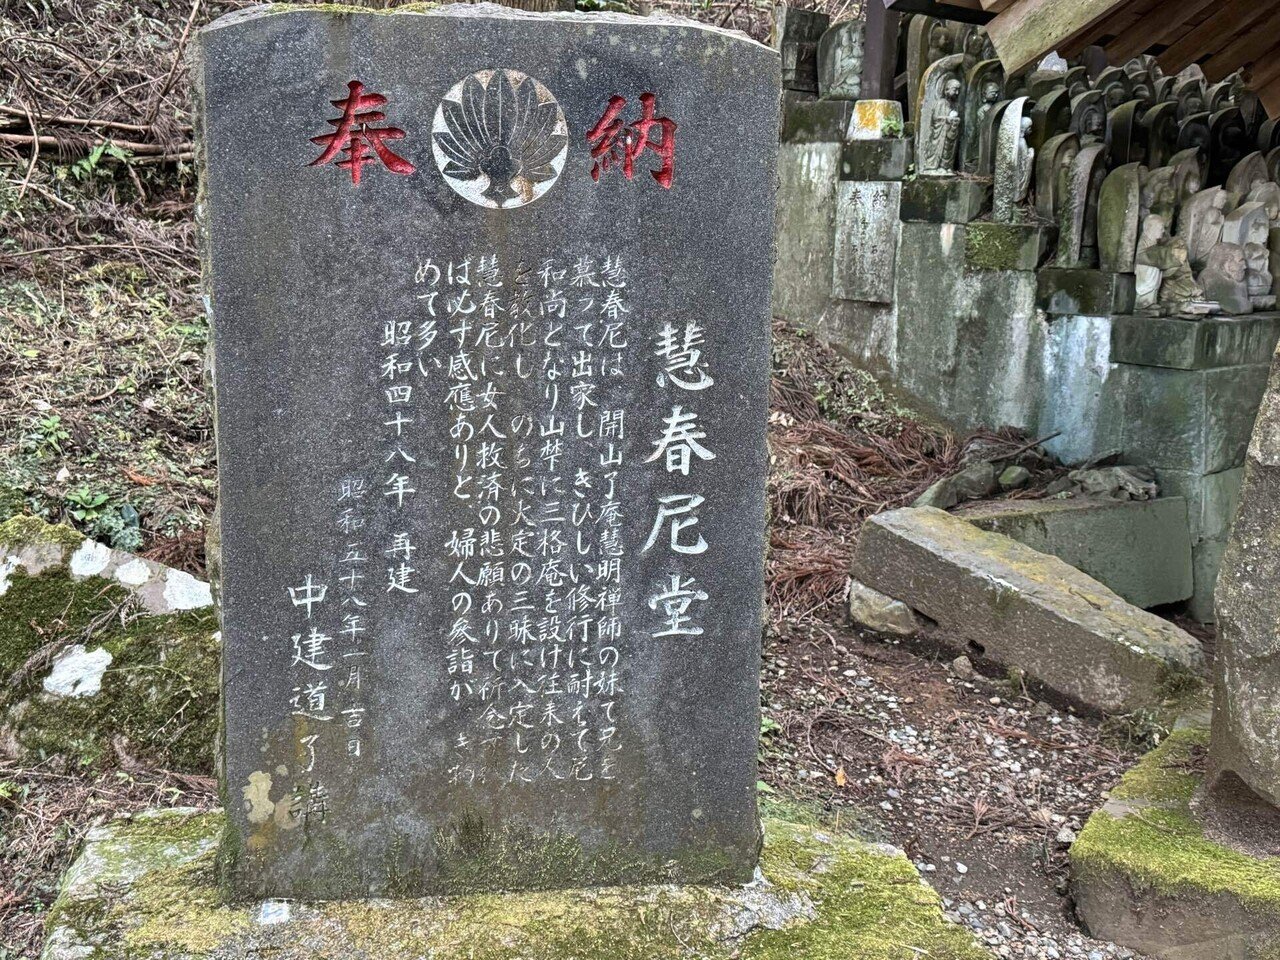 奉納
慧春尼堂
慧春尼は、開山了庵慧明禅師の妹で兄を
慕って出家し きびしい修行に耐えて尼
和尚となり山麓に三格庵を設け往来の人
を教化し のちに火定の三昧に入定した
慧春尼に女人救済の悲願ありて祈念
ば必ず感應ありと、婦人の参詣が
めて多い
昭和四十八年 再建
昭和五十八年一月吉日
中建道了講
奉納